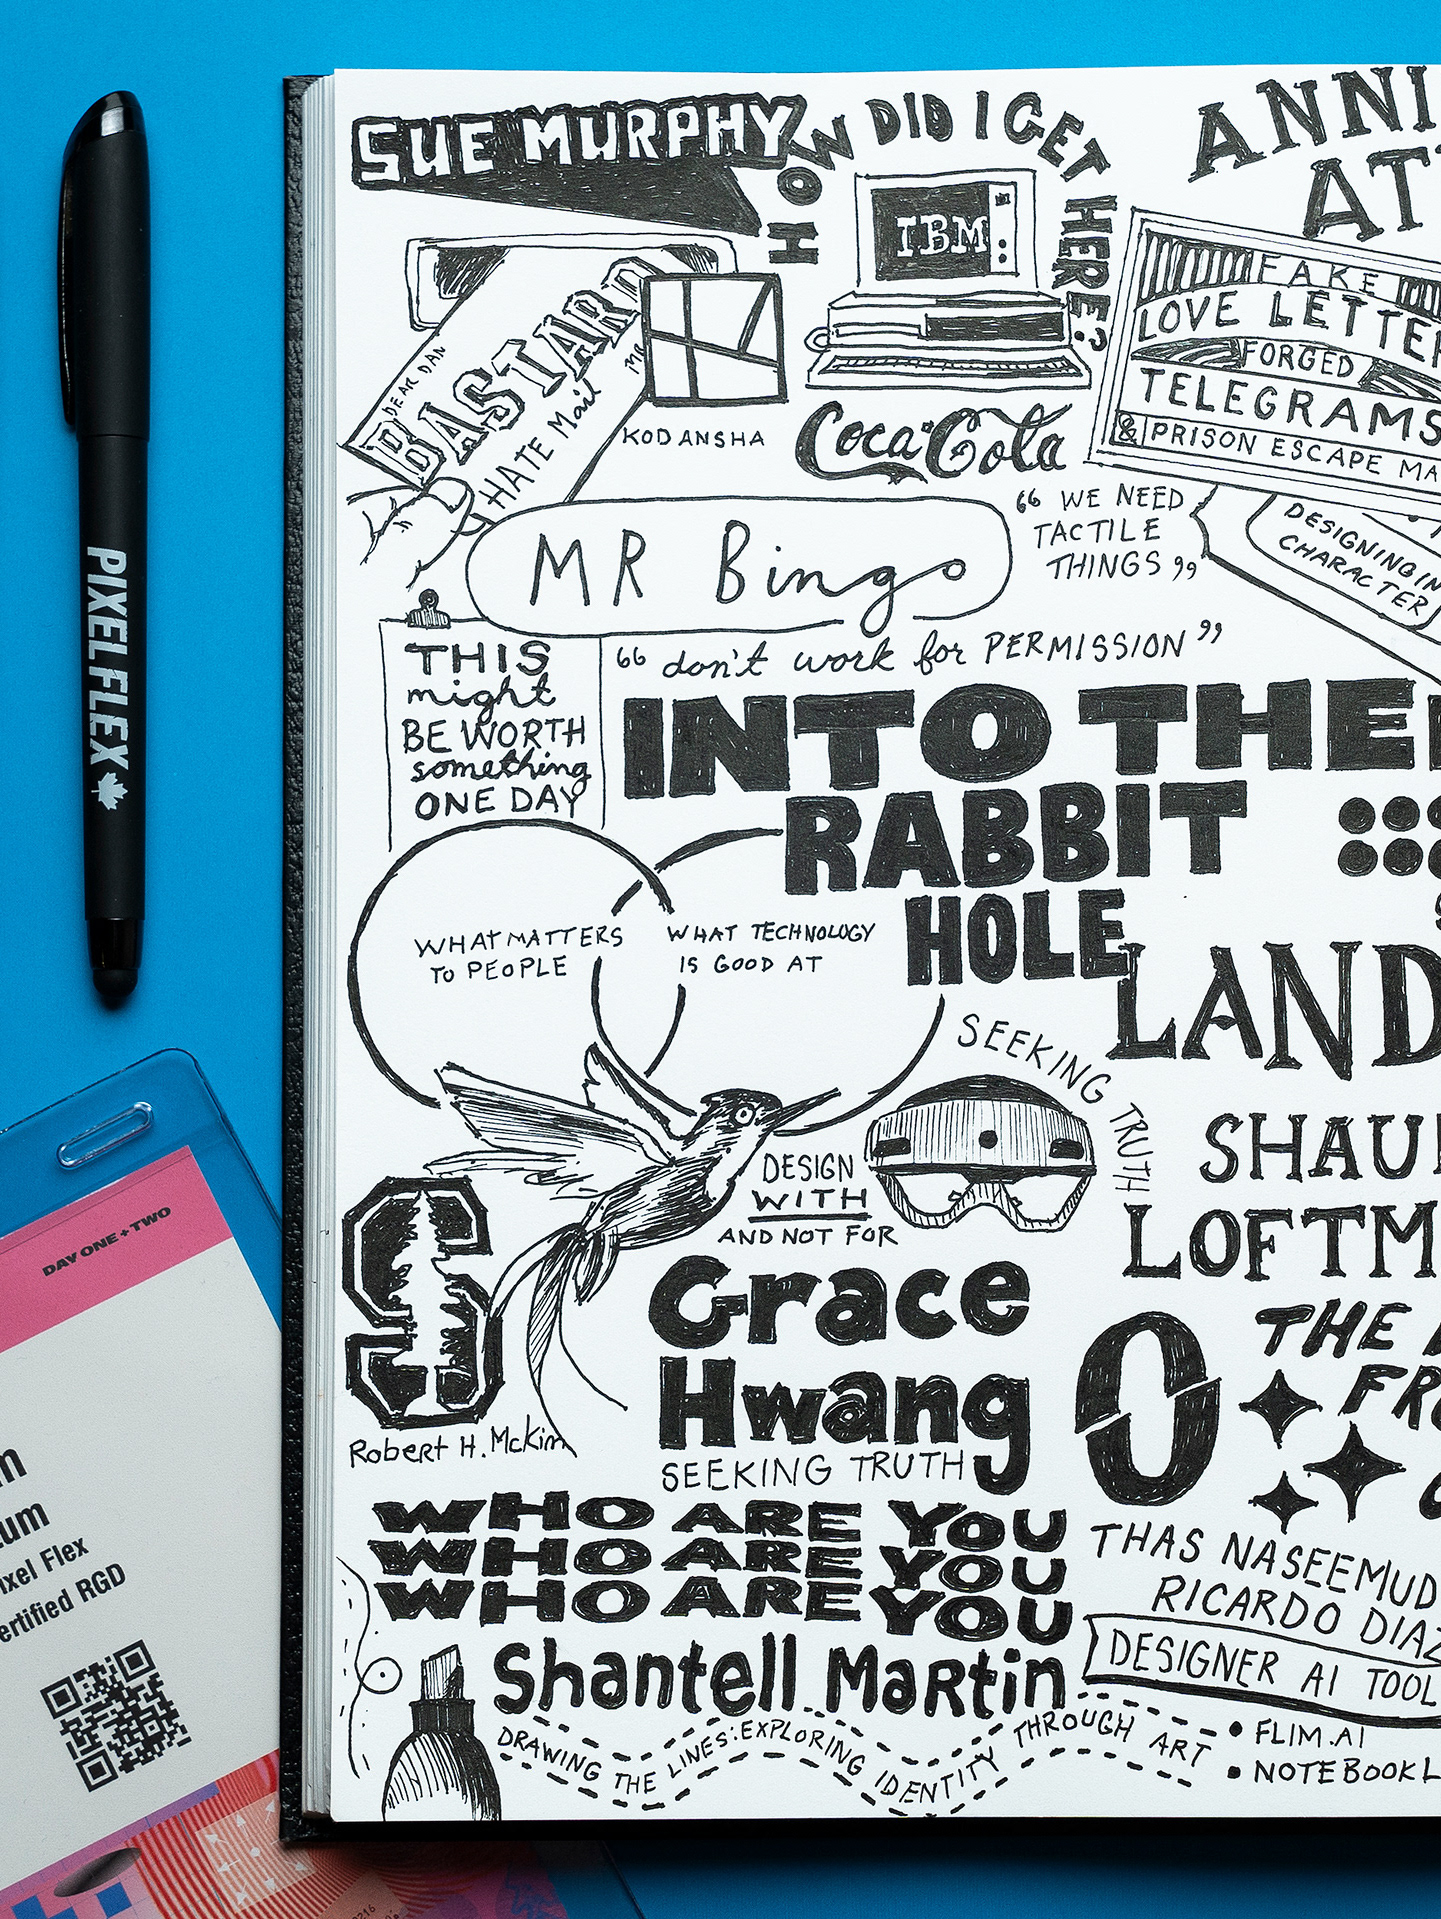 SUE MURPHY
HOW DID I GET HERE?
IBM
DEAR DAN
BASTARD
HATE Mail
MR
KODANSHA
Coca-Cola
ANNI
AT
FAKE
LOVE LETTER
FORGED
TELEGRAMS
& PRISON ESCAPE MA
DESIGNING IN
CHARACTER
MR Bingo
“ WE NEED
TACTILE
THINGS ”
“ don't work for PERMISSION ”
THIS
might
BE WORTH
something
ONE DAY
INTO THE
RABBIT
HOLE
WHAT MATTERS
TO PEOPLE
WHAT TECHNOLOGY
IS GOOD AT
LAND
SEEKING TRUTH
DESIGN
WITH
AND NOT FOR
SHAU
LOFTM
S
Robert H. McKim
Grace
Hwang
SEEKING TRUTH
O
THE
FR
WHO ARE YOU
WHO ARE YOU
WHO ARE YOU
THAS NASEEMUD
RICARDO DIAZ
DESIGNER AI TOOL
• FLIM.AI
• NOTEBOOKL
Shantell Martin
DRAWING THE LINES: EXPLORING IDENTITY THROUGH ART
PIXELFLEX
DAY ONE + TWO
m
um
ixel Flex
ertified RGD